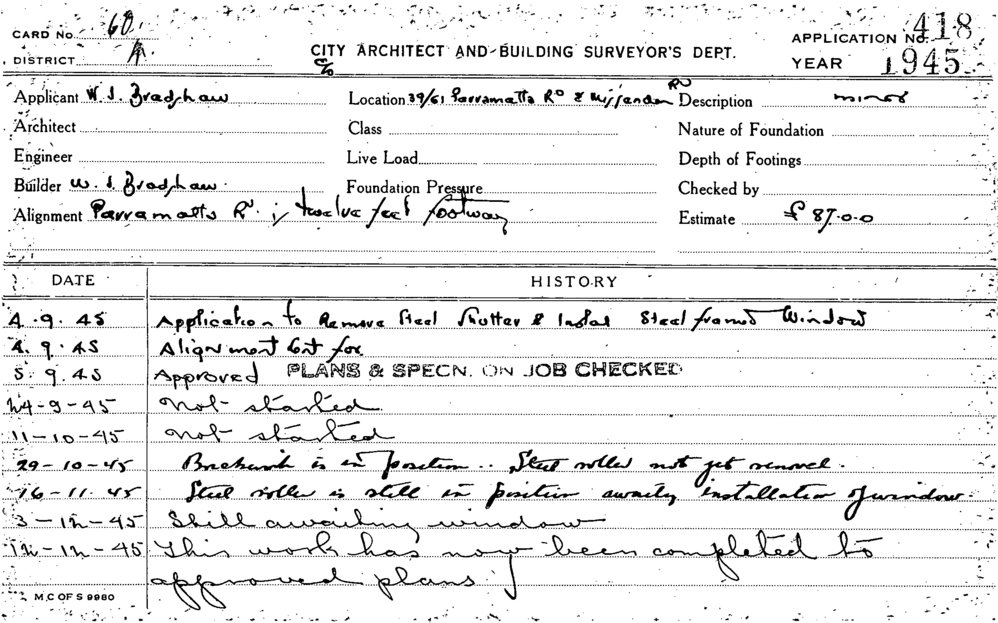 CARD No. 60
APPLICATION No. 418
DISTRICT A
CITY ARCHITECT AND BUILDING SURVEYOR'S DEPT.
YEAR 1945
Applicant W. J. Bradshaw Location 39/61 Parramatta Rd & Missenden Rd Description minor
Architect Class Nature of Foundation
Engineer Live Load Depth of Footings
Builder W. J. Bradshaw. Foundation Pressure Checked by
Alignment Parramatta Rd. ; twelve feet footway Estimate £ 87.0.0
DATE HISTORY
4.9.45 Application to Remove Steel Shutter & Instal Steel framed Window
4.9.45 Alignment for
5.9.45 Approved PLANS & SPECN. ON JOB CHECKED
24-9-45 Not started
11-10-45 Not started
29-10-45 Brickwork is in position.. Steel roller not yet removed.
16-11.45 Steel roller is still in position awaiting installation of window.
3-12-45 Still awaiting window
12-12-45 This work has now been completed to
approved plans.
M.C OF S 9980